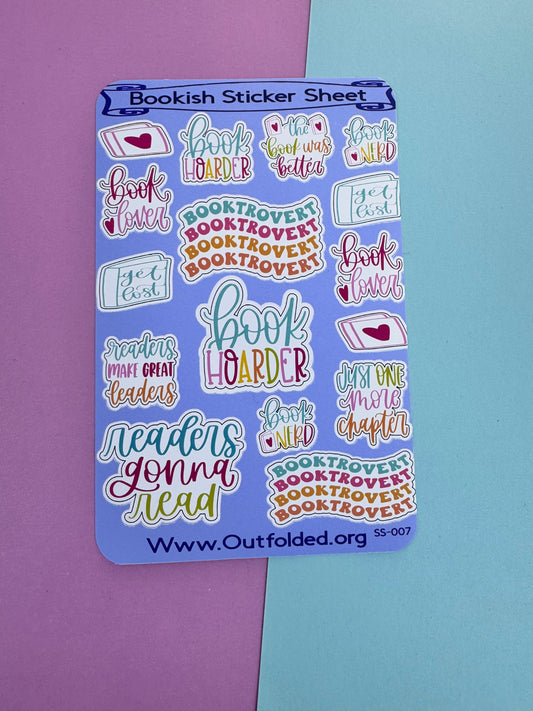 Bookish Sticker Sheet
book
HOARDER
the
book was
better
book
NERD
book
lover
BOOKTROVERT
BOOKTROVERT
BOOKTROVERT
BOOKTROVERT
get
lost
get
lost
book
lover
book
HOARDER
readers
MAKE GREAT
leaders
JUST ONE
more
chapter
book
NERD
readers
gonna
read
BOOKTROVERT
BOOKTROVERT
BOOKTROVERT
BOOKTROVERT
Www.Outfolded.org
SS-007